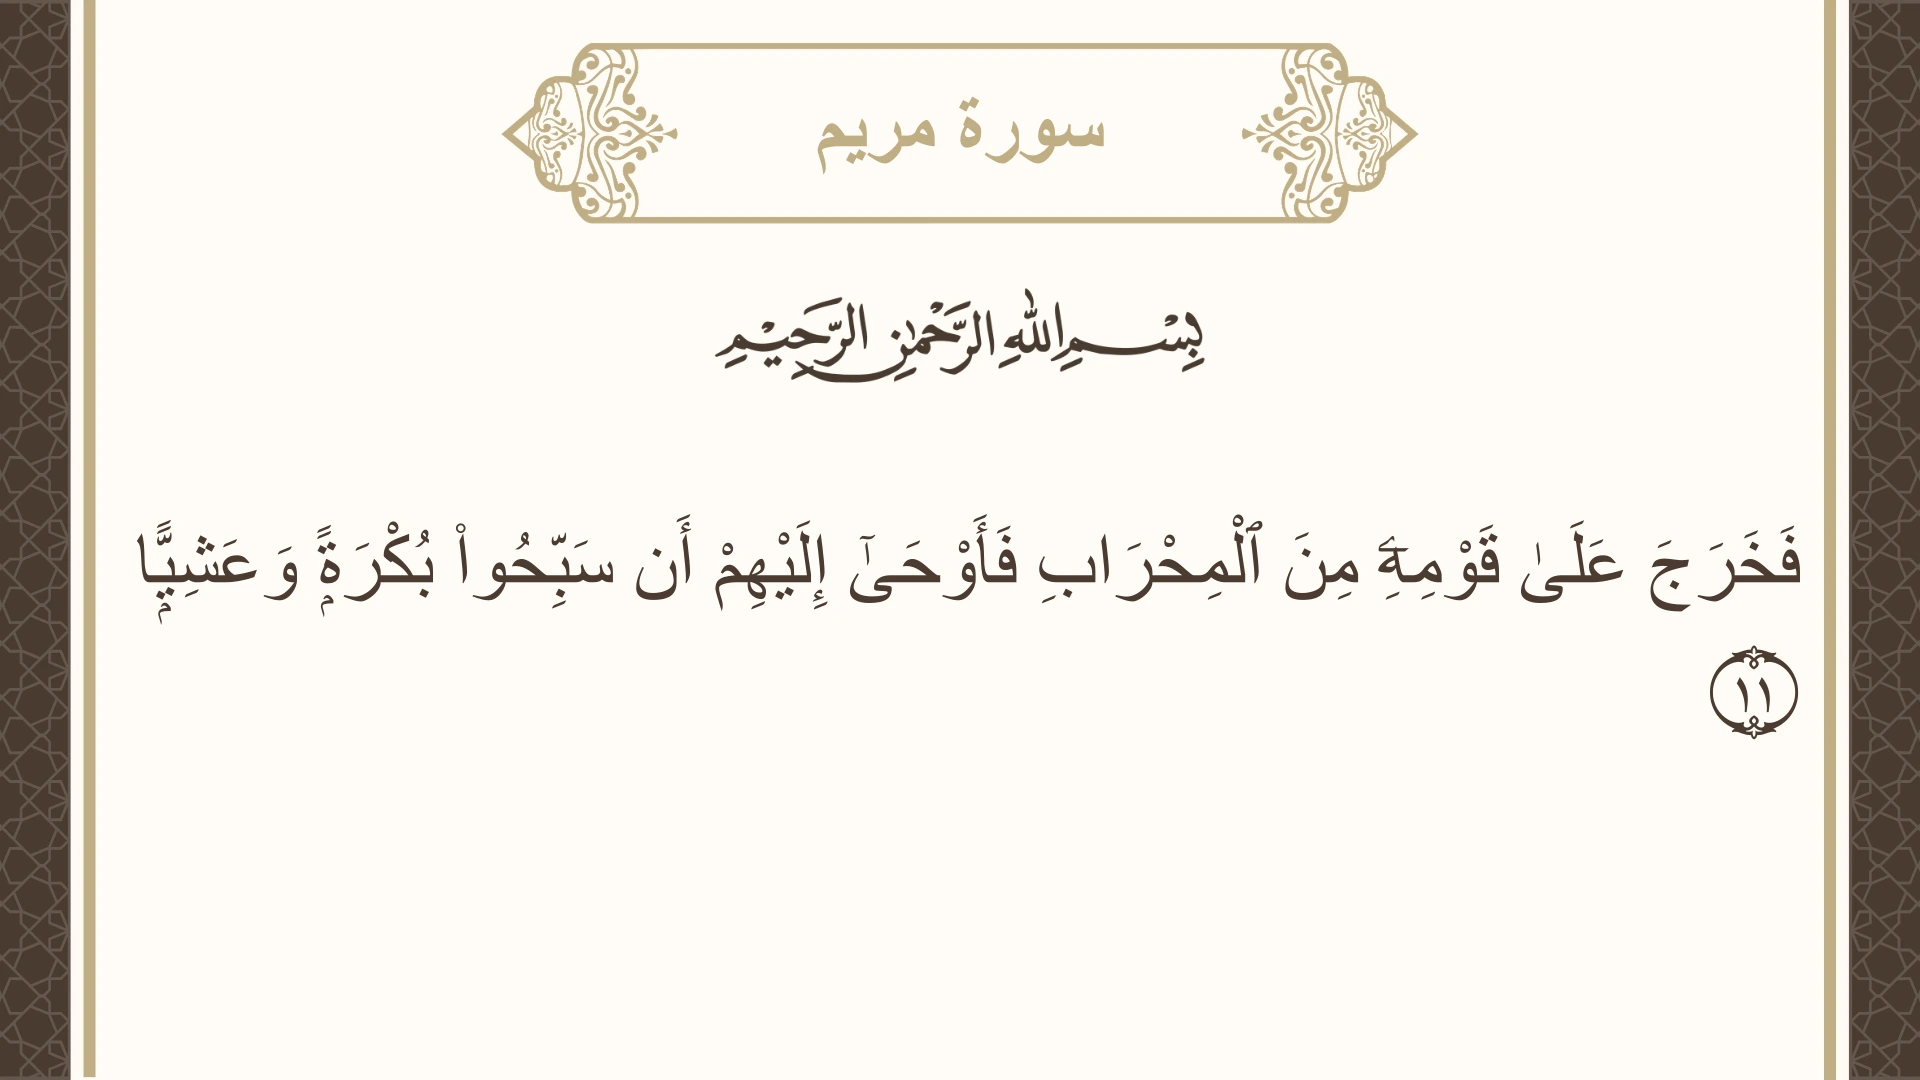 سورة مريم
بِسْمِ اللهِ الرَّحْمٰنِ الرَّحِيْمِ
فَخَرَجَ عَلَىٰ قَوْمِهِۦٓ مِنَ ٱلْمِحْرَابِ فَأَوْحَىٰٓ إِلَيْهِمْ أَن سَبِّحُوا۟ بُكْرَةًۭ وَعَشِيًّۭا
١١